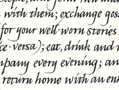 with them; exchange gos
for your well-worn stories
ce-versa); eat, drink and
pany every evening; an
return home with an en